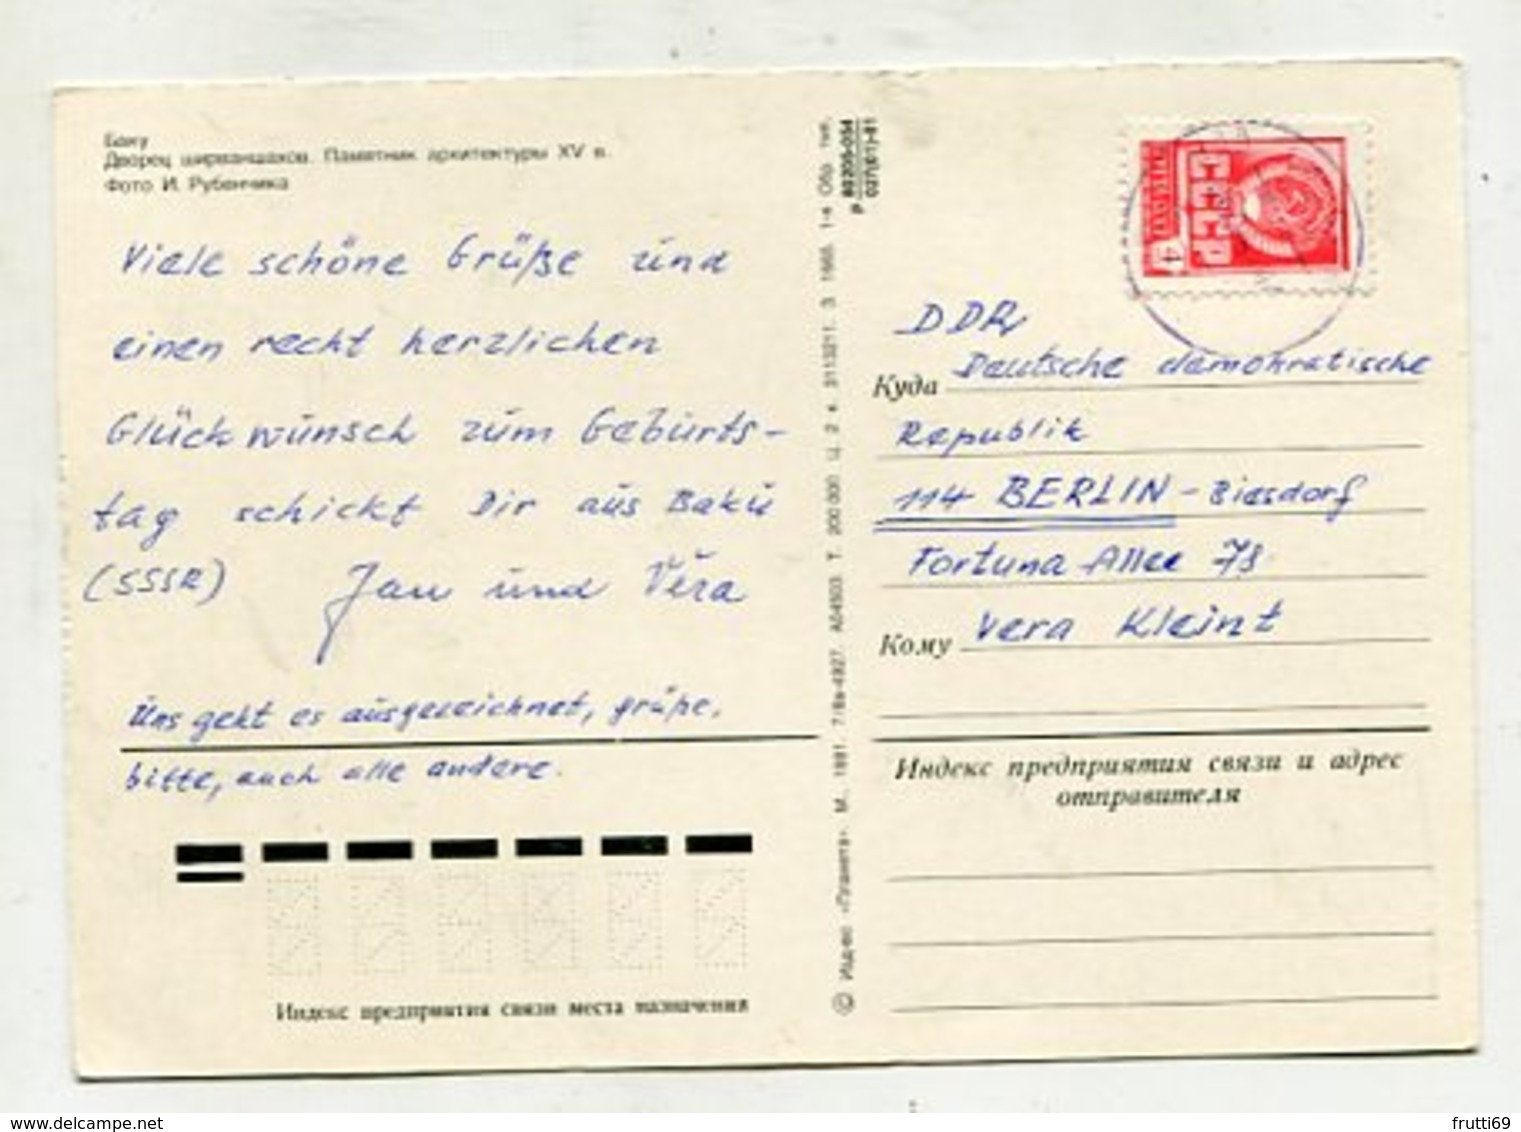 Баку
Дворец ширваншахов. Памятник архитектуры XV в.
Фото И. Рубенчика
Viele schöne Grüße und
einen recht herzlichen
Glückwunsch zum Geburts-
tag schickt Dir aus Baku
(SSSR) Jan und Věra
Uns geht es ausgezeichnet, grüße,
bitte, auch alle andere.
Индекс предприятия связи места назначения
© Изд-во «Планета». М., 1981. 7/8в-4927. А04503. Т. 200 000. Ц. 2 к. 311321. З. 1665. 1-я Обр. тип.
Р 80205-054
027(01)-81
СССР
4
DDR
Куда Deutsche demokratische
Republik
114 BERLIN - Biesdorf
Fortuna Allee 78
Кому Vera Kleint
Индекс предприятия связи и адрес
отправителя
www.delcampe.net
frutti69